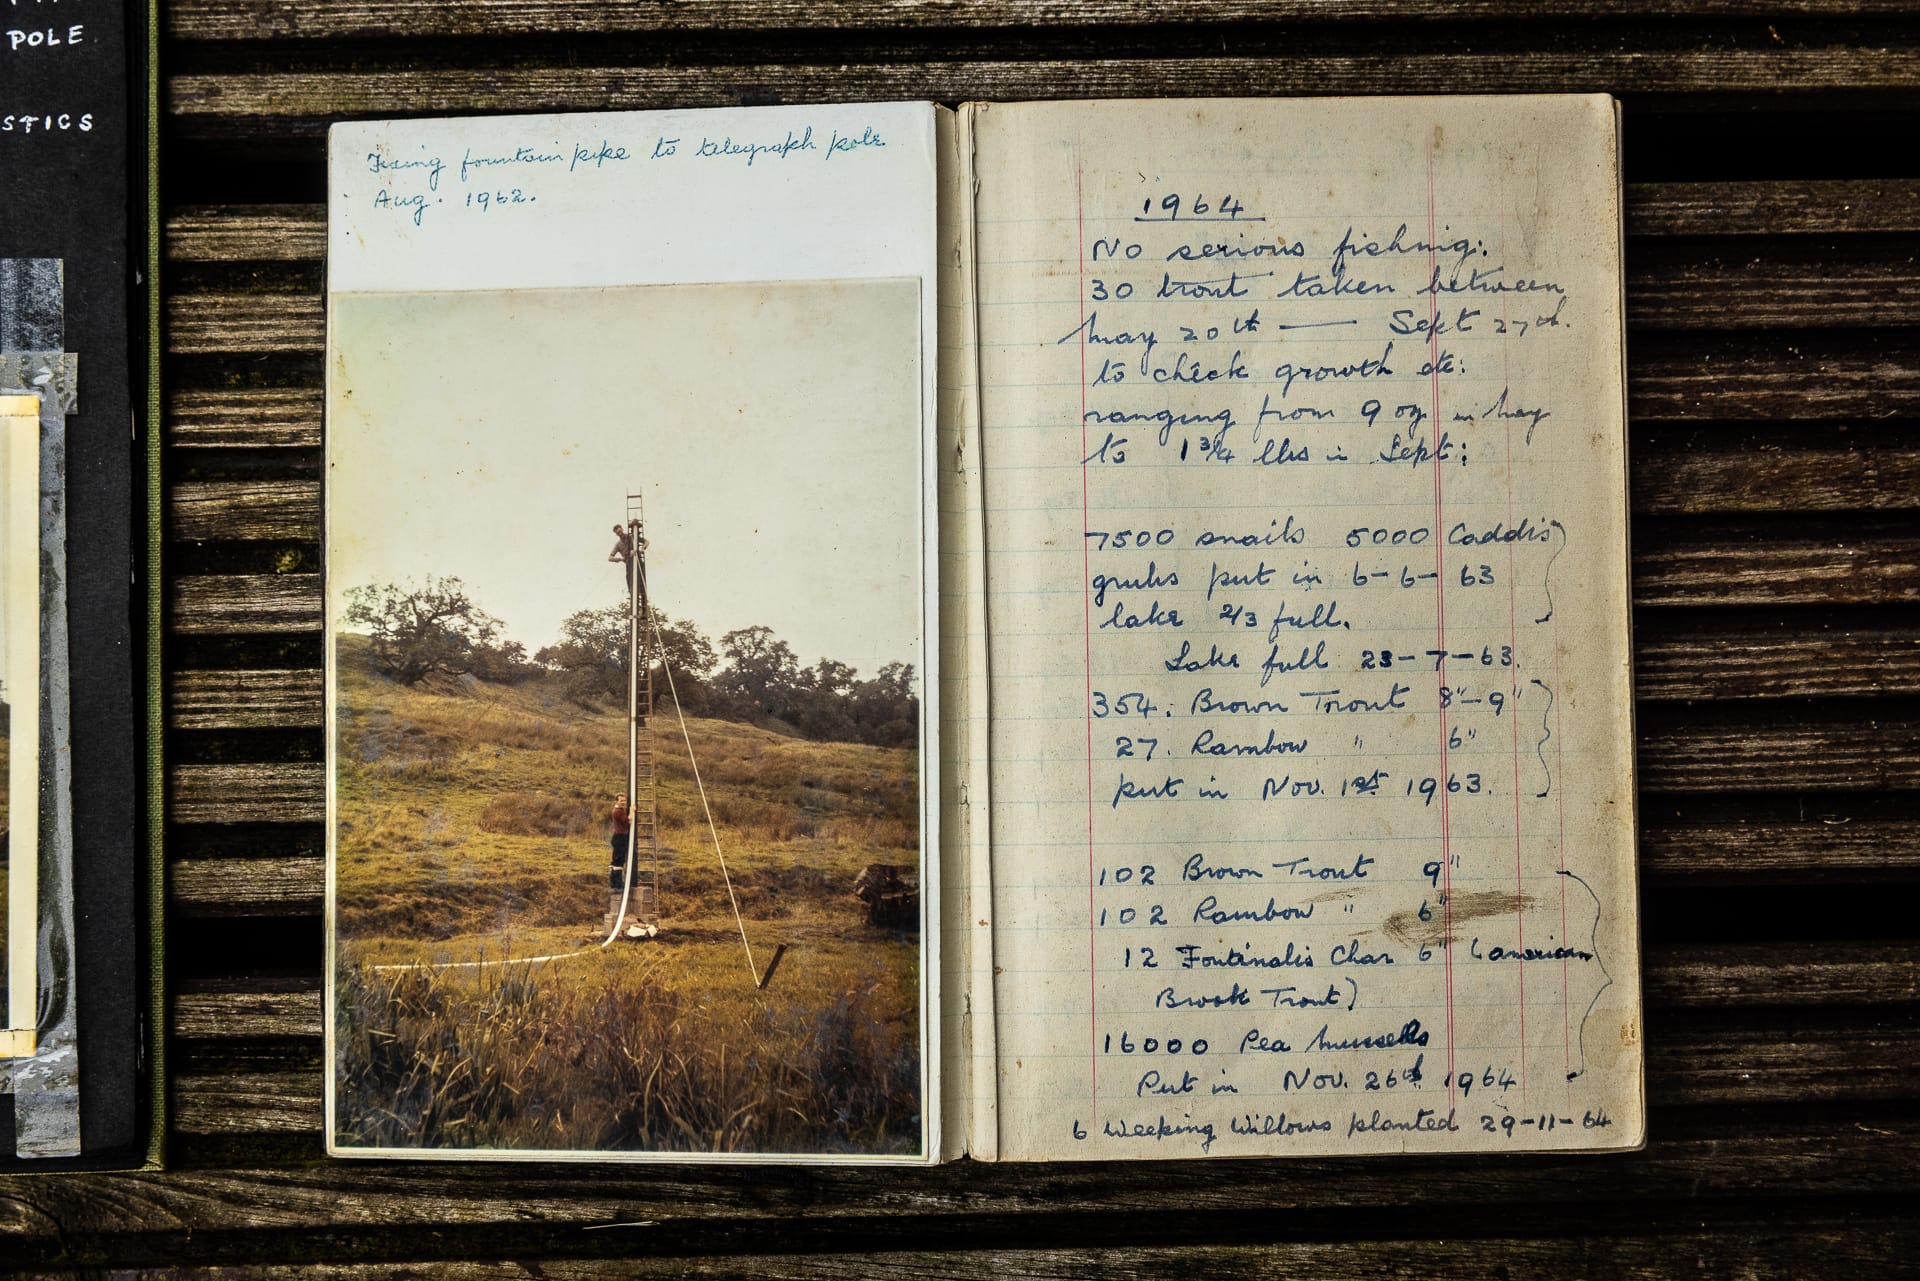 POLE
STICS
Fixing fountain pipe to telegraph pole
Aug. 1962.
1964
No serious fishing:
30 trout taken between
May 20th — Sept 27th.
to check growth etc:
ranging from 9 oz in May
to 1 3/4 lbs in Sept:
7500 snails 5000 Caddis
grubs put in 6-6-63
lake 2/3 full.
Lake full 23-7-63.
354. Brown Trout 8"-9"
27. Rainbow " 6"
put in Nov. 1st 1963.
102 Brown Trout 9"
102 Rainbow " 6"
12 Fontinalis Char 6" (american
Brook Trout)
16000 Pea Mussels
Put in Nov. 26th 1964
6 Weeping Willows planted 29-11-64